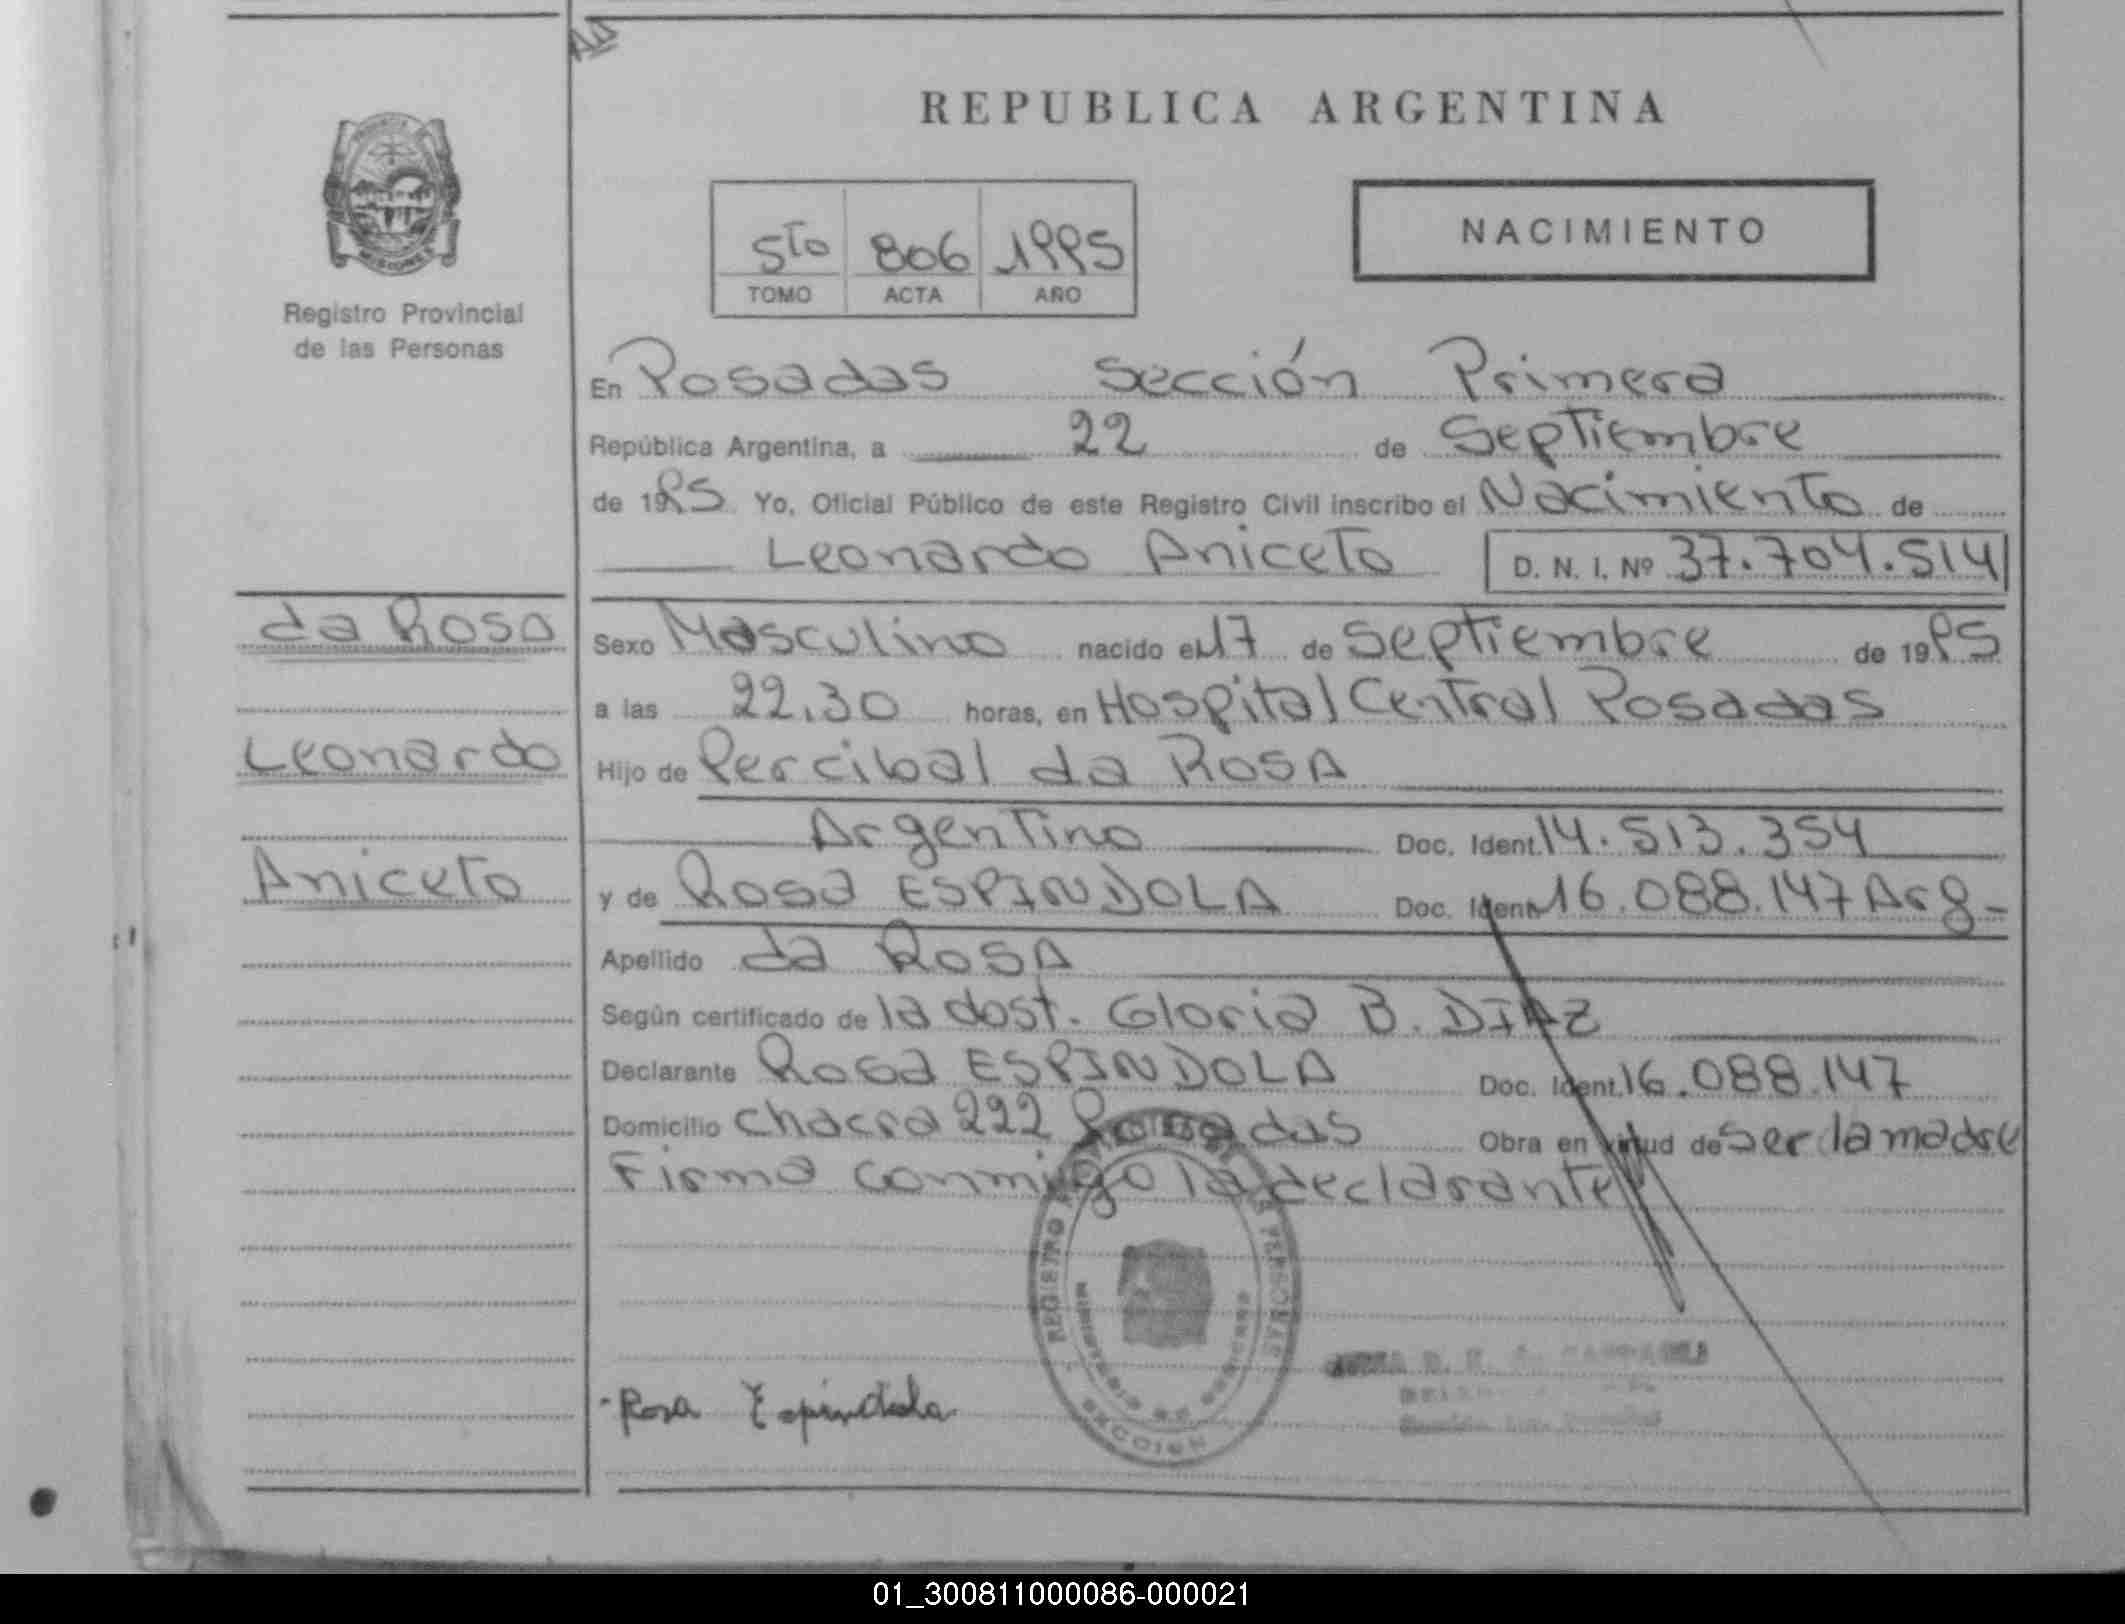 REPUBLICA ARGENTINA
Registro Provincial
de las Personas
5to 806 1995
TOMO ACTA AÑO
NACIMIENTO
En Posadas Sección Primera
República Argentina, a 22 de Septiembre
de 1995 Yo, Oficial Público de este Registro Civil inscribo el Nacimiento de
Leonardo Aniceto D. N. I. Nº 37.704.514
da Rosa
Leonardo
Aniceto
Sexo Masculino nacido el 17 de Septiembre de 1995
a las 22,30 horas, en Hospital Central Posadas
Hijo de Percibal da Rosa
Argentino Doc. Ident. 14.513.354
y de Rosa ESPINDOLA Doc. Ident. 16.088.147 Arg-
Apellido da Rosa
Según certificado de la dost. Gloria B. DIAZ
Declarante Rosa ESPINDOLA Doc. Ident. 16.088.147
Domicilio chacra 222 Posadas Obra en virtud de ser la madre
Firma conmigo la declarante
REGISTRO PERSONAS
MINISTERIO DE GOBIERNO
SECCION
Rosa Espindola
01_300811000086-000021